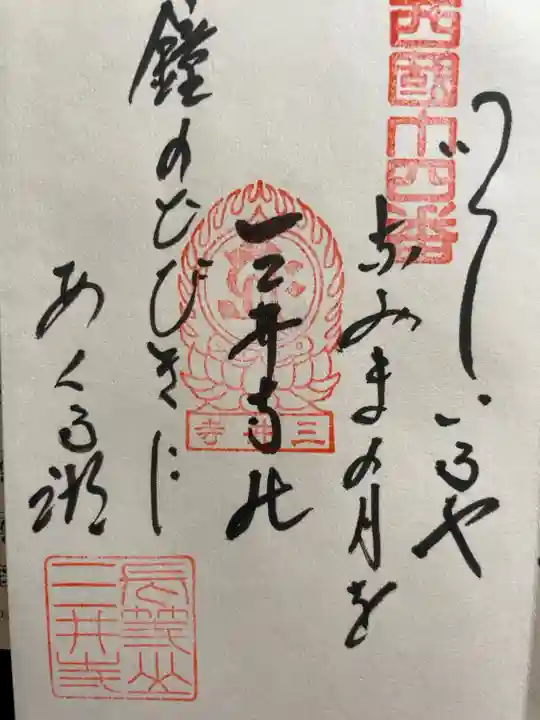 西國十四番
いでいるや
なみまの月を
三井寺の
三井寺
鐘のひびきに
あくる湖
長等山
三井寺